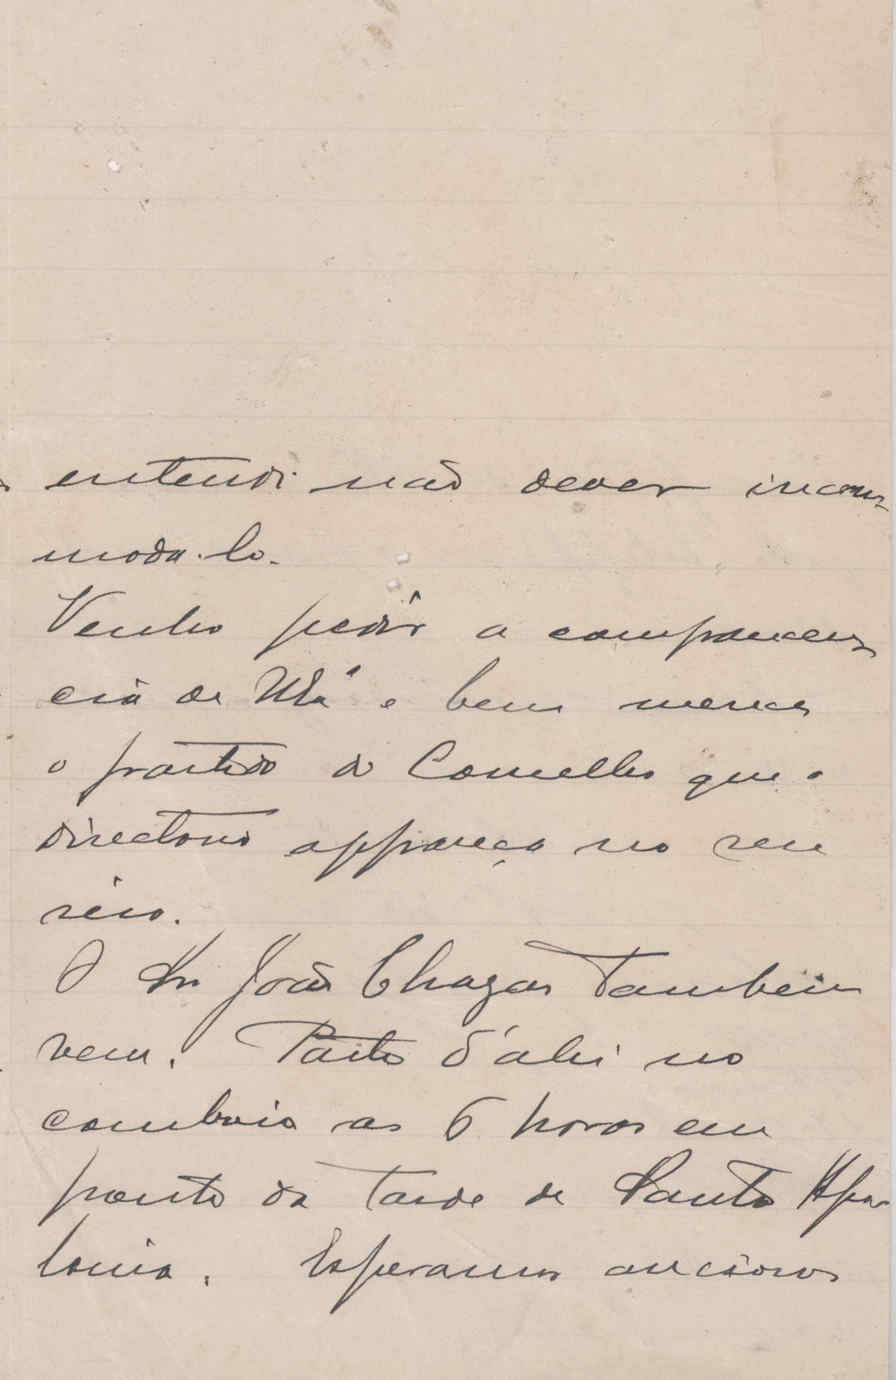 entendi não dever incom
moda-lo.
Venho pedir a comparencen
cia de e bem merece
o partido do Concelho que o
directorio appareça no seu
seio.
O Sr. João Chagas tambem
vem. Parto d'ahi no
comboio as 6 horas em
ponto da tarde de Santa Apo
lonia. Esperamos anciosos